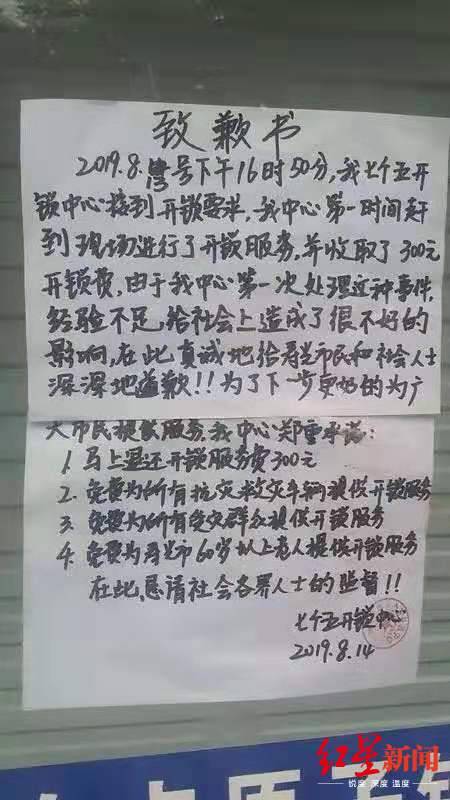 致歉书
2019.8.号下午16时50分,我七仟五开
锁中心接到开锁要求,我中心第一时间赶
到现场进行了开锁服务,并收取了300元
开锁费,由于我中心第一次处理这种事件,
经验不足,给社会上造成了很不好的
影响,在此真诚地给寿光市民和社会人士
深深地道歉!!为了下一步更好的为广
大市民提供服务,我中心郑重承诺:
1.马上退还开锁服务费300元
2.免费为所有抗灾救灾车辆提供开锁服务
3.免费为所有受灾群众提供开锁服务
4.免费为寿光市60岁以上老人提供开锁服务
在此,恳请社会各界人士的监督!!
七仟五开锁中心
2019.8.14
红星新闻
锐度 深度 温度